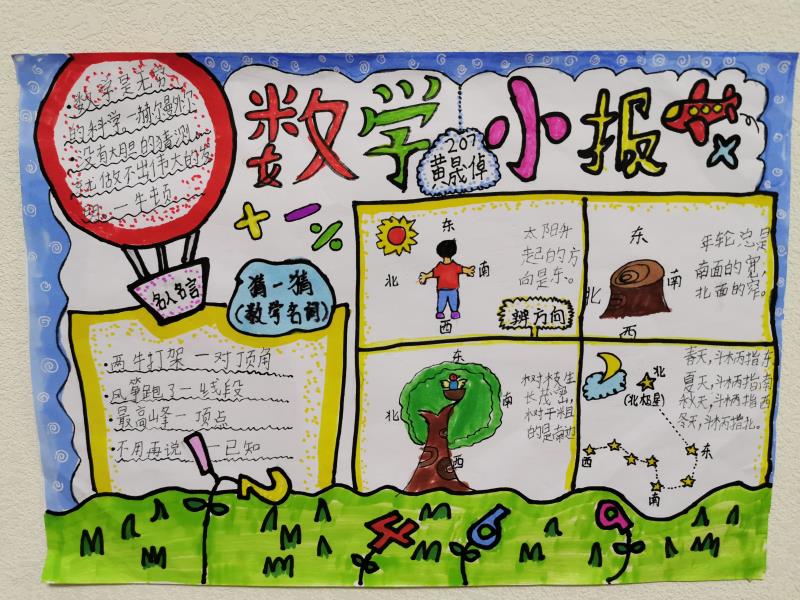 数学小报
207
黄晟倬
·数学是无穷
的科学—赫尔曼外尔
·没有大胆的猜测
就做不出伟大的发
现 — 牛顿
名人名言
猜一猜
(数学名词)
·两牛打架—对顶角
·风筝跑了—线段
·最高峰—顶点
·不用再说—已知
东
北
南
西
太阳升
起的方
向是东。
辨方向
东
北
南
西
年轮总是
南面的宽,
北面的窄。
东
北
南
西
树枝生
长茂密,
树干粗
的是南边
北
(北极星)
东
西
南
春天,斗柄指东
夏天,斗柄指南
秋天,斗柄指西
冬天,斗柄指北。
2
4
6
9